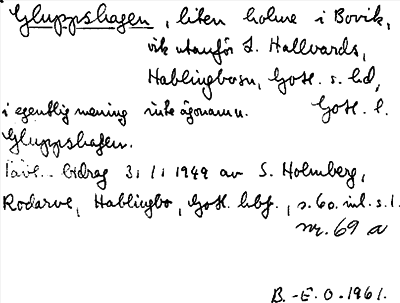 Gluppshagen, liten holme i Bovik,
vik utanför S. Hallvards,
Hablingbosn, Gotl. s. hd,
i egentlig mening inte ägonamn. Gotl. l.
Gluppshagen.
Tävl. bidrag 3/1 1949 av S. Holmberg,
Rodarve, Hablingbo, Gotl. hbf., s. 60. inl. s. 1.
nr. 69 a
B.-E.O. 1961.